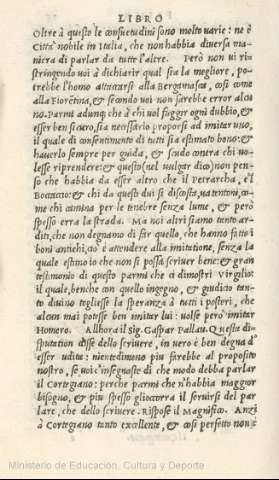 LIBRO
Oltre à questo le consuetudini sono molto varie: ne è
Città nobile in Italia, che non habbia diversa ma-
niera di parlar da tutte l'altre. Però non vi ri-
stringendo voi à dichiarir qual sia la megliore, po-
trebbe l'homo attaccarsi alla Bergamasca, cosi come
alla Fiorētina, & secondo voi non sarebbe error alcu
no. Parmi adunq; che à chi vol fuggir ogni dubbio, &
esser ben sicuro, sia necessario proporsi ad imitar uno,
il quale di consentimento di tutti sia estimato bono: &
hauerlo sempre per guida, & scudo contra chi vo-
lesse riprendere: & questo (nel vulgar dico) non pen-
so che habbia da esser altro che il Petrarcha, e'l
Boccaccio: & chi da questi dui si discosta, va tentoni, co-
me chi camina per le tenebre senza lume, & però
spesso erra la strada. Ma noi altri siamo tanto ar-
diti, che non degnamo di far quello, che hanno fatto i
boni antichi, ciò è attendere alla imitatione, senza la
quale estimo io che non si possa scriuer bene: & gran
testimonio di questo parmi che ci dimostri Virgilio:
il quale, benche con quello ingegno, & giudicio tan-
to diuino togliesse la speranza à tutti i posteri, che
alcun mai potesse ben imitar lui: volse però imitar
Homero. Allhora il Sig. Gaspar Pallau. Questa di-
sputation disse dello scriuere, in vero è ben degna d'
esser udita: nientedimeno piu farebbe al proposito
nostro, se voi c'insegnaste di che modo debba parlar
il Cortegiano: perche parmi che n'habbia maggior
bisogno, & piu spesso gli occorra il seruirsi del par
lare, che dello scriuere. Rispose il Magnifico. Anzi
à Cortegiano tanto excellente, & cosi perfetto non è
Ministerio de Educación, Cultura y Deporte